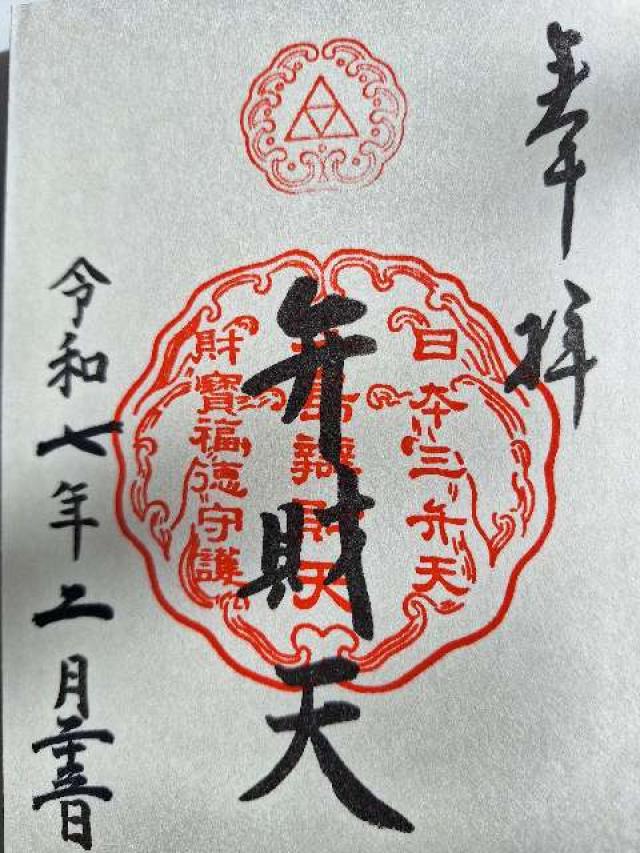 奉拝
日本三弁天
島辯財天
弁財天
財寶福徳守護
令和七年二月二十三日